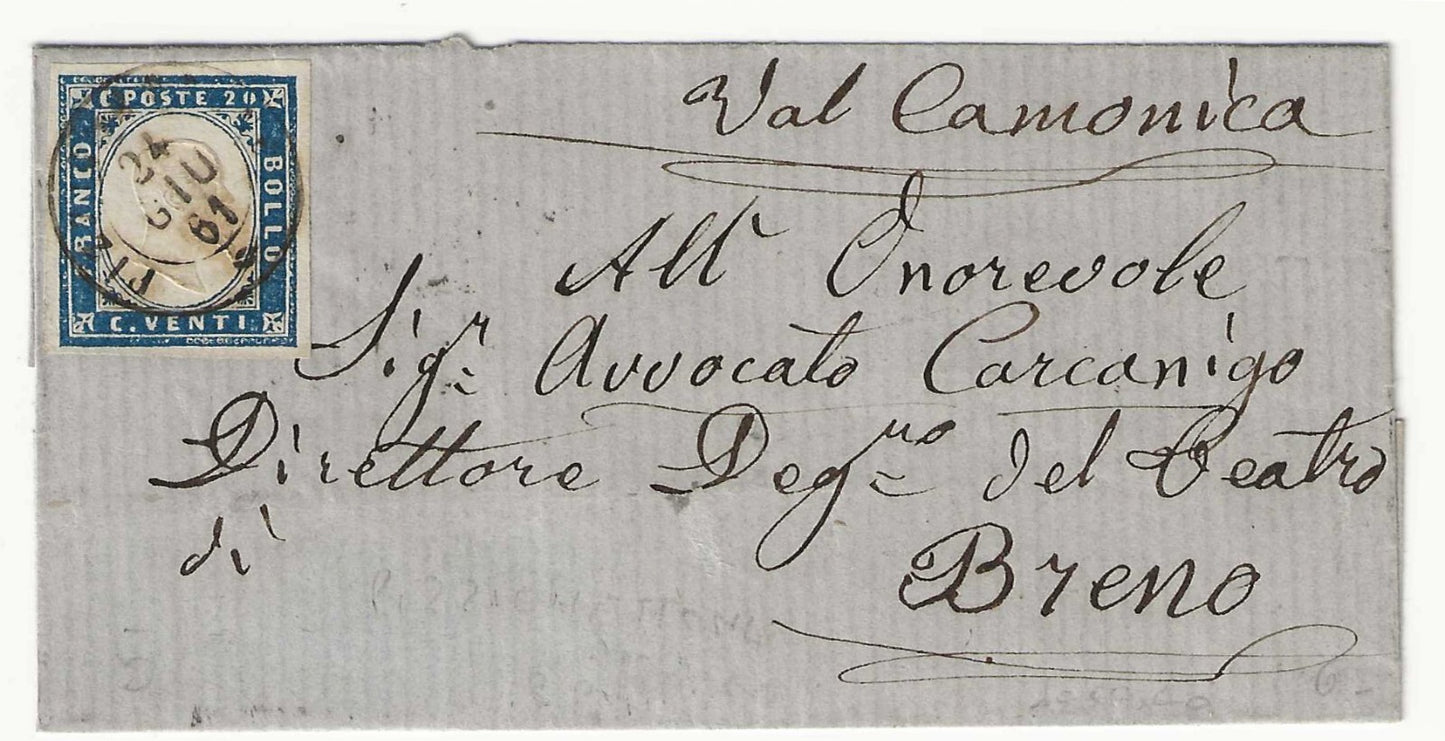 C. POSTE 20
FRANCO
BOLLO
C. VENTI
24
GIU
61
Val Camonica
All' Onorevole
Sig.r Avvocato Carcanigo
Direttore Deg.mo del Teatro
di
Breno